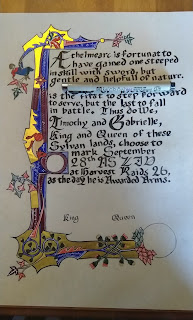 Æthelmearc is fortunate to
have gained one steeped
in skill with sword, but
gentle and helpful of nature.
is the first to step forward
to serve, but the last to fall
in battle. Thus do We,
Timothy and Gabrielle,
King and Queen of these
Sylvan lands, choose to
mark September
28th AS XLIV
at Harvest Raids 26,
as the day he is Awarded Arms.
King Queen